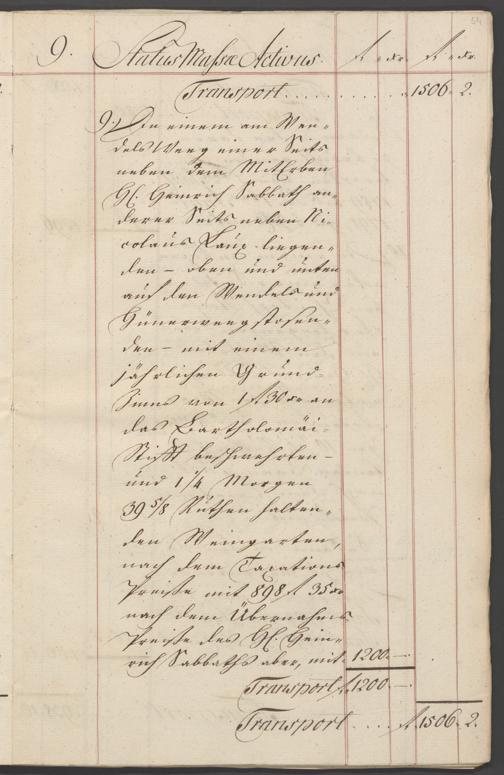 54
9. Status Massae Activus. fl xr. fl xr.
Transport . . . . . . . . . . 1506 2.
9.) In einem am Wen=
dels Weeg einer Seits
neben dem MitErben
H. Heinrich Sabbath an=
derer Seits neben Ni=
colaus Laux liegen=
den – oben und unten
auf den Wendels und
Hünerweeg stosen=
den – mit einem
jährlichen Grund=
Zinns von 1 fl 30 xr an
das Bartholomäi=
Stifft beschwehrten –
und 1 1/4 Morgen
39 5/8 Ruthen halten=
den Weingarten,
nach dem Taxations
Preisse mit 898 fl 35 xr
nach dem Übernahms
Preisse des H. Hein=
rich Sabbaths aber, mit 1200. —.
Transport fl. 1200 —.
Transport . . . . fl. 1506. 2.